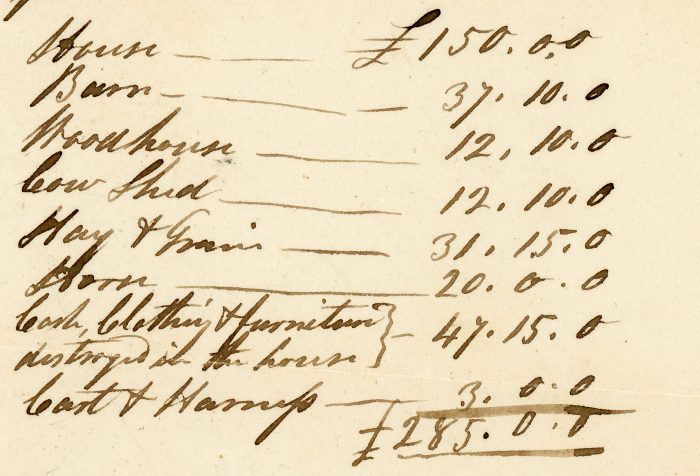 House — — £150.0.0
Barn — — — 37.10.0
Woodhouse — 12.10.0
Cow Shed — 12.10.0
Hay & Grain — 31.15.0
Horse — 20.0.0
Cash, Clothing & furniture } — 47.15.0
destroyed in the house
Cart & Harneſs — 3.0.0
£285.0.0